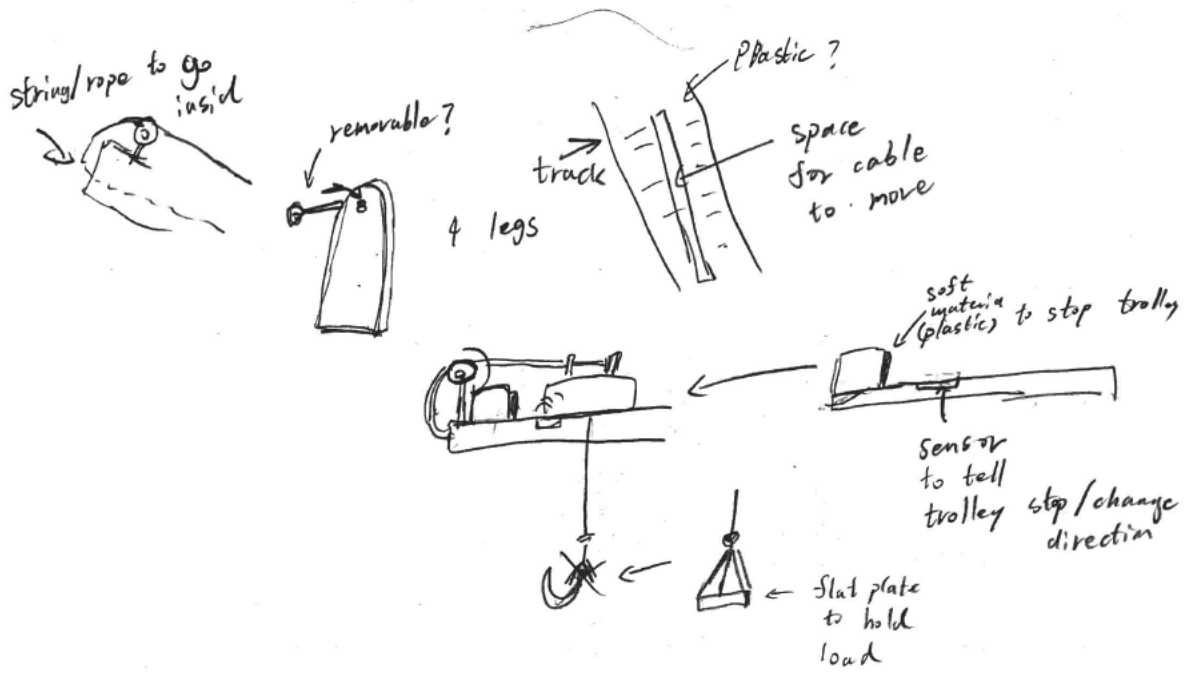 string/rope to go
insid
removable?
4 legs
track
Plastic?
space
for cable
to move
soft
materia
(plastic) to stop trolley
sensor
to tell
trolley stop/change
direction
flat plate
to hold
load